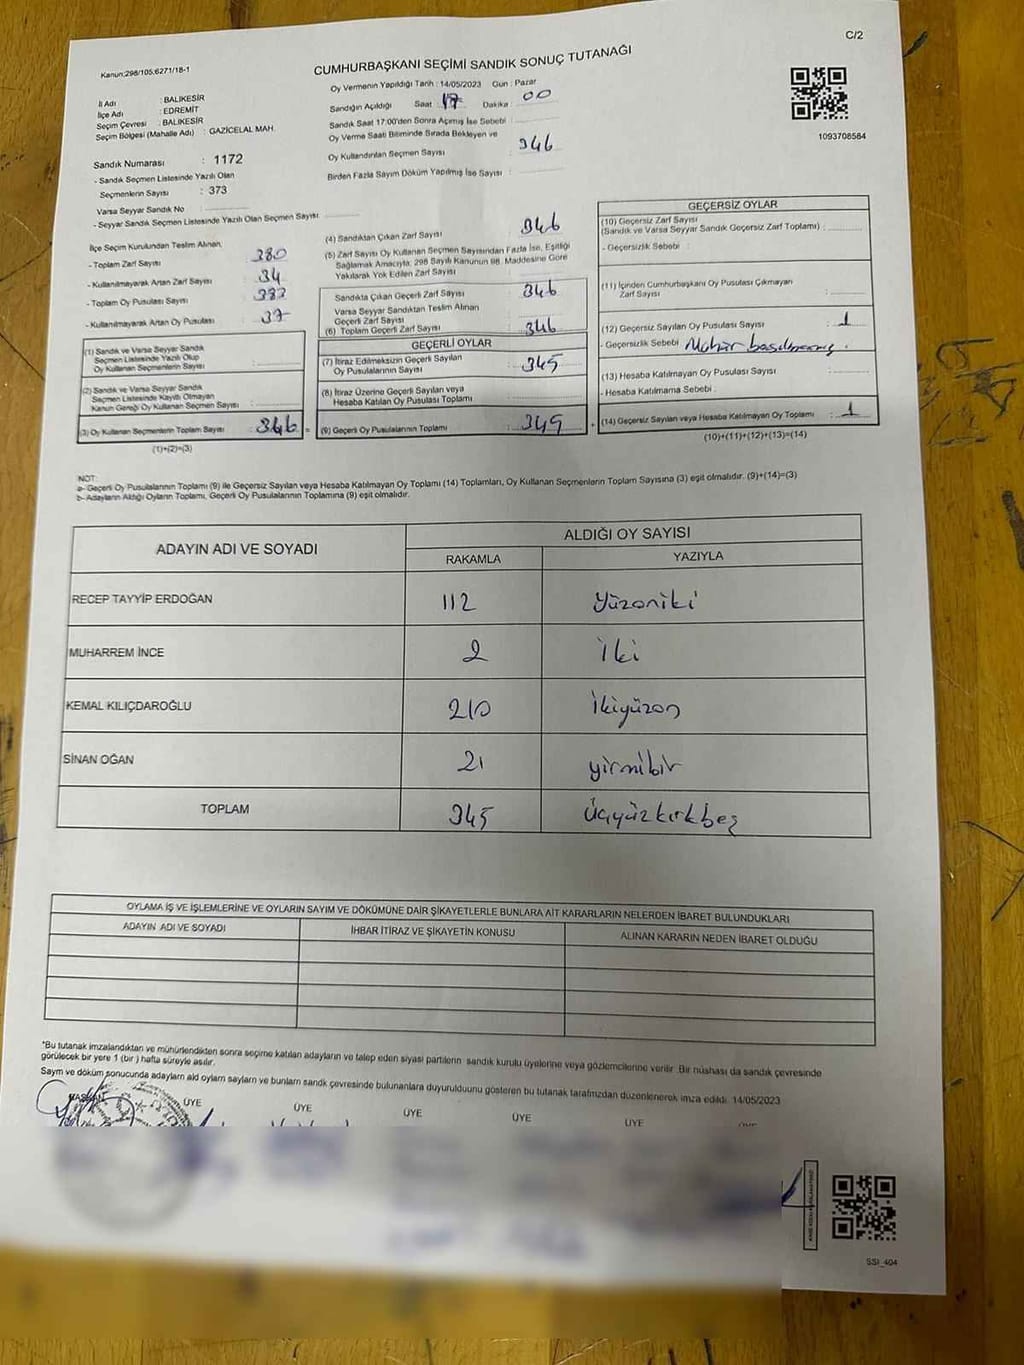 C/2
Kanun:298/105:6271/18-1
CUMHURBAŞKANI SEÇİMİ SANDIK SONUÇ TUTANAĞI
İl Adı : BALIKESİR
İlçe Adı : EDREMİT
Seçim Çevresi : BALIKESİR
Seçim Bölgesi (Mahalle Adı) : GAZİCELAL MAH.
Sandık Numarası : 1172
- Sandık Seçmen Listesinde Yazılı Olan
Seçmenlerin Sayısı : 373
Varsa Seyyar Sandık No :
- Seyyar Sandık Seçmen Listesinde Yazılı Olan Seçmen Sayısı:
Oy Vermenin Yapıldığı Tarih : 14/05/2023 Gün : Pazar
Sandığın Açıldığı Saat : 17 Dakika : 00
Sandık Saat 17:00'den Sonra Açılmış İse Sebebi :
Oy Verme Saati Bitiminde Sırada Bekleyen ve
Oy Kullandırılan Seçmen Sayısı : 346
Birden Fazla Sayım Döküm Yapılmış İse Sayısı :
1093708584
İlçe Seçim Kurulundan Teslim Alınan,
- Toplam Zarf Sayısı : 380
- Kullanılmayarak Artan Zarf Sayısı : 34
- Toplam Oy Pusulası Sayısı : 383
- Kullanılmayarak Artan Oy Pusulası : 37
(1) Sandık ve Varsa Seyyar Sandık
Seçmen Listesinde Yazılı Olup
Oy Kullanan Seçmenlerin Sayısı :
(2) Sandık ve Varsa Seyyar Sandık
Seçmen Listesinde Kayıtlı Olmayan
Kanun Gereği Oy Kullanan Seçmen Sayısı :
(3) Oy Kullanan Seçmenlerin Toplam Sayısı : 346
(1)+(2)=(3)
(4) Sandıktan Çıkan Zarf Sayısı : 346
(5) Zarf Sayısı Oy Kullanan Seçmen Sayısından Fazla İse, Eşitliği
Sağlamak Amacıyla; 298 Sayılı Kanunun 98. Maddesine Göre
Yakılarak Yok Edilen Zarf Sayısı :
Sandıkta Çıkan Geçerli Zarf Sayısı : 346
Varsa Seyyar Sandıktan Teslim Alınan
Geçerli Zarf Sayısı :
(6) Toplam Geçerli Zarf Sayısı : 346
GEÇERLİ OYLAR
(7) İtiraz Edilmeksizin Geçerli Sayılan
Oy Pusulalarının Sayısı : 345
(8) İtiraz Üzerine Geçerli Sayılan veya
Hesaba Katılan Oy Pusulası Toplamı :
= (9) Geçerli Oy Pusulalarının Toplamı : 345
GEÇERSİZ OYLAR
(10) Geçersiz Zarf Sayısı
(Sandık ve Varsa Seyyar Sandık Geçersiz Zarf Toplamı) :
- Geçersizlik Sebebi :
(11) İçinden Cumhurbaşkanı Oy Pusulası Çıkmayan
Zarf Sayısı :
(12) Geçersiz Sayılan Oy Pusulası Sayısı : 1
- Geçersizlik Sebebi : Mühür basılmamış.
(13) Hesaba Katılmayan Oy Pusulası Sayısı :
- Hesaba Katılmama Sebebi :
+ (14) Geçersiz Sayılan veya Hesaba Katılmayan Oy Toplamı : 1
(10)+(11)+(12)+(13)=(14)
NOT:
a- Geçerli Oy Pusulalarının Toplamı (9) ile Geçersiz Sayılan veya Hesaba Katılmayan Oy Toplamı (14) Toplamları, Oy Kullanan Seçmenlerin Toplam Sayısına (3) eşit olmalıdır. (9)+(14)=(3)
b- Adayların Aldığı Oyların Toplamı, Geçerli Oy Pusulalarının Toplamına (9) eşit olmalıdır.
ADAYIN ADI VE SOYADI ALDIĞI OY SAYISI
RAKAMLA YAZIYLA
RECEP TAYYİP ERDOĞAN 112 Yüzoniki
MUHARREM İNCE 2 İki
KEMAL KILIÇDAROĞLU 210 İkiyüzon
SİNAN OĞAN 21 yirmibir
TOPLAM 345 Üçyüzkırkbeş
OYLAMA İŞ VE İŞLEMLERİNE VE OYLARIN SAYIM VE DÖKÜMÜNE DAİR ŞİKAYETLERLE BUNLARA AİT KARARLARIN NELERDEN İBARET BULUNDUKLARI
ADAYIN ADI VE SOYADI İHBAR İTİRAZ VE ŞİKAYETİN KONUSU ALINAN KARARIN NEDEN İBARET OLDUĞU
*Bu tutanak imzalandıktan ve mühürlendikten sonra seçime katılan adayların ve talep eden siyasi partilerin sandık kurulu üyelerine veya gözlemcilerine verilir. Bir nüshası da sandık çevresinde
görülecek bir yere 1 (bir) hafta süreyle asılır.
Sayım ve döküm sonucunda adayların aldı oyların sayıları ve bunların sandk çevresinde bulunanlara duyurulduunu gösteren bu tutanak tarafımzdan düzenlenerek imza edildi. 14/05/2023
BAŞKAN ÜYE ÜYE ÜYE ÜYE ÜYE
SSI_404